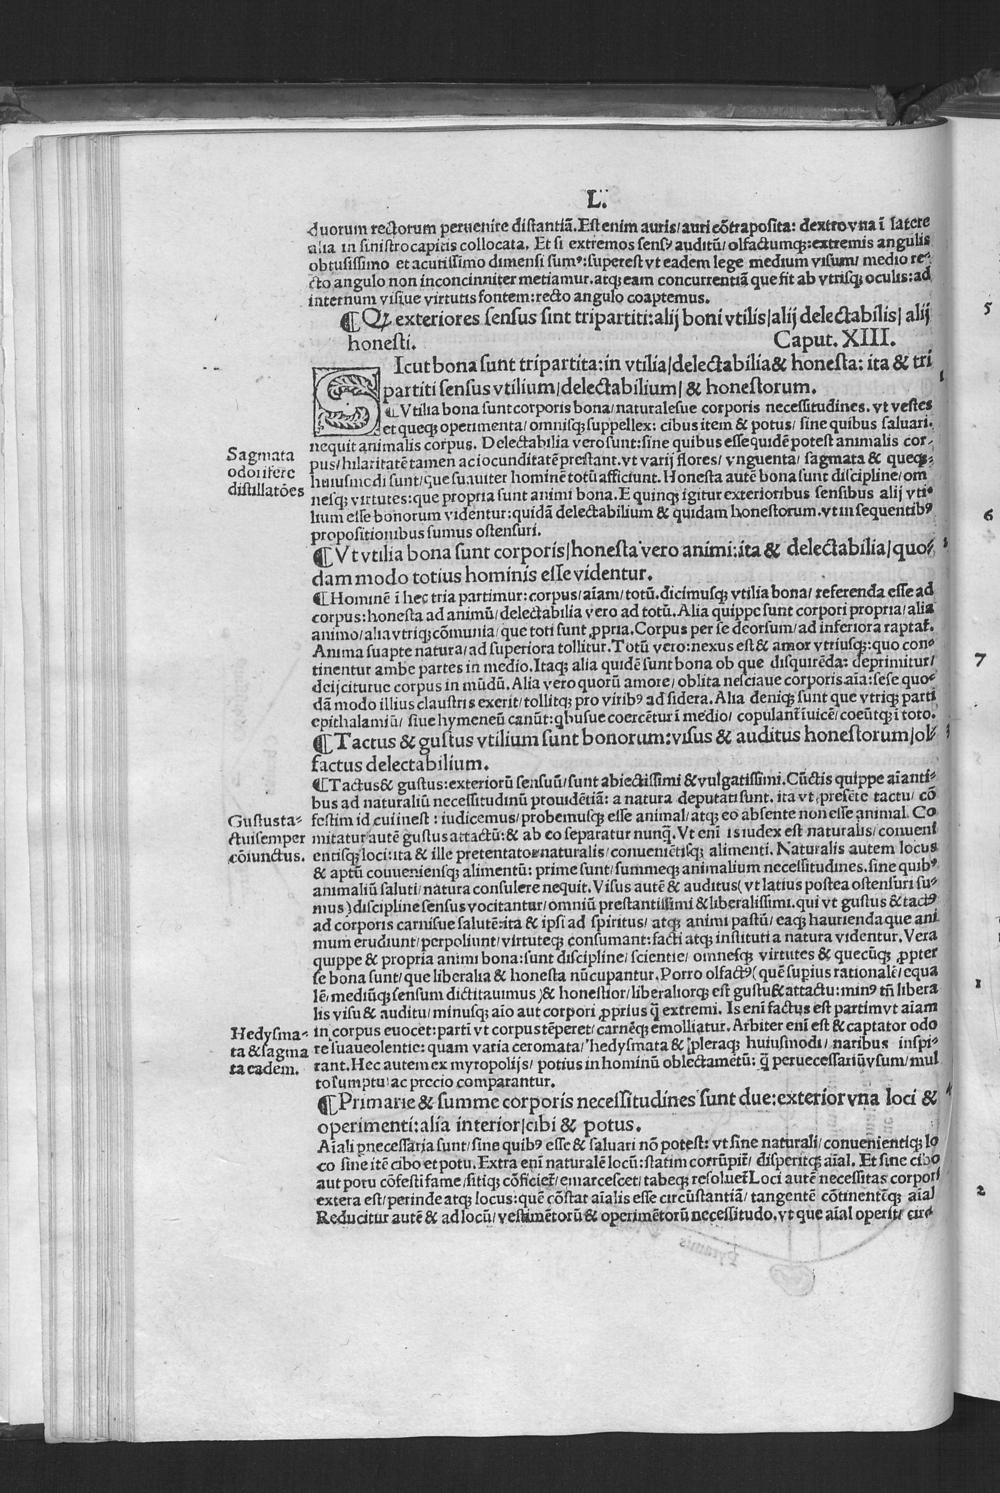 L.
duorum rectorum peruenire distantiā. Est enim auris/auri cōtraposita: dextro vna ī latere
alia in sinistro capitis collocata. Et si extremos sensꝰ auditū/olfactumqȝ: extremis angulis
obtusissimo et acutissimo dimensi sumꝰ: superest vt eadem lege medium visum/medio re-
cto angulo non inconcinniter metiamur. atqȝ eam concurrentiā que fit ab vtrisqȝ oculis: ad
internum visiue virtutis fontem: recto angulo coaptemus.
¶ Qꝙ exteriores sensus sint tripartiti: alij boni vtilis/alij delectabilis/alij
honesti. Caput. XIII.
SIcut bona sunt tripartita: in vtilia/delectabilia & honesta: ita & tri 1
partiti sensus vtilium/delectabilium/& honestorum.
¶ Vtilia bona sunt corporis bona/naturalesue corporis necessitudines. vt vestes
et queqȝ operimenta/omnisqȝ suppellex: cibus item & potus/sine quibus saluari.
nequit animalis corpus. Delectabilia vero sunt: sine quibus esse quidē potest animalis cor-
Sagmata
odorifere
distillatōes
pus/hilaritatē tamen ac iocunditatē prestant. vt varij flores/vnguenta/sagmata & queqȝ
huiusmodi sunt/que suauiter hominē totū afficiunt. Honesta autē bona sunt discipline/om
nesqȝ virtutes: que propria sunt animi bona. E quinqȝ igitur exterioribus sensibus alij vti-
lium esse bonorum videntur: quidā delectabilium & quidam honestorum. vt in sequentibꝰ
propositionibus sumus ostensuri.
¶ Vt vtilia bona sunt corporis/honesta vero animi: ita & delectabilia/quo- 2
dammodo totius hominis esse videntur.
¶ Hominē ī hec tria partimur: corpus/aīam/totū. dicimusqȝ vtilia bona/referenda esse ad
corpus: honesta ad animū/delectabilia vero ad totū. Alia quippe sunt corpori propria/alia
animo/alia vtriqȝ cōmunia/que toti sunt ꝓpria. Corpus per se deorsum/ad inferiora raptat̄.
Anima suapte natura/ad superiora tollitur. Totū vero: nexus est & amor vtriusqȝ: quo con-
tinentur ambe partes in medio. Itaqȝ alia quidē sunt bona ob que disquirēda: deprimitur/
deijciturue corpus in mūdū. Alia vero quorū amore/oblita nesciaue corporis aīa: sese quo-
dā modo illius claustris exerit/tollitqȝ pro viribꝰ ad sidera. Alia deniqȝ sunt que vtriqȝ parti
epithalamiū/siue hymeneū canūt: qbusue coercētur ī medio/copulant̄ īuicē/coeūtqȝ ī toto.
¶ Tactus & gustus vtilium sunt bonorum: visus & auditus honestorum/ol- 3
factus delectabilium.
¶ Tactus & gustus: exteriorū sensuū/sunt abiectissimi & vulgatissimi. Cūctis quippe aīanti-
bus ad naturaliū necessitudinū prouidētiā: a natura deputati sunt. ita vt presēte tactu/cō
Gustus ta-
ctui semper
cōiunctus.
festim id cui inest: iudicemus/probemusqȝ esse animal/atqȝ eo absente non esse animal. Co
mitatur autē gustus attactū: & ab eo separatur nunqȝ. Vt enī is iudex est naturalis/conueni
entisqȝ loci: ita & ille pretentator naturalis/conueniētisqȝ alimenti. Naturalis autem locus
& aptū conueniensqȝ alimentū: prime sunt/summeqȝ animalium necessitudines. sine quibꝰ
animaliū saluti/natura consulere nequit. Visus autē & auditus (vt latius postea ostensuri su-
mus) discipline sensus vocitantur/omniū prestantissimi & liberalissimi. qui vt gustus & tactꝰ
ad corporis carnisue salutē: ita & ipsi ad spiritus/atqȝ animi pastū/eaqȝ haurienda que ani
mum erudiunt/perpoliunt/virtuteqȝ consumant: facti atqȝ instituti a natura videntur. Vera
quippe & propria animi bona: sunt discipline/scientie/omnesqȝ virtutes & quecūqȝ ꝓpter
se bona sunt/que liberalia & honesta nūcupantur. Porro olfactꝰ (quē supius rationalē/equa
lē/mediūqȝ sensum dictitauimus) & honestior/liberaliorqȝ est gustu & attactu: minꝰ tn̄ libera
lis visu & auditu/minusqȝ aio aut corpori ꝓprius q̄ extremi. Is enī factus est partim vt aīam
Hedysma-
ta & sagma
ta eadem.
in corpus euocet: partī vt corpus tēperet/carnēqȝ emolliatur. Arbiter enī est & captator odo
re suaueolentie: quam varia ceromata/hedysmata & pleraqȝ huiusmodi/naribus inspi-
rant. Hec autem ex myropolijs/potius in hominū oblectamētū: q̄ per necessariū vsum/mul
to sumptu ac precio comparantur.
¶ Primarie & summe corporis necessitudines sunt due: exterior vna loci & 4
operimenti: alia interior/cibi & potus.
Aīali pnecessaria sunt/sine quibꝰ esse & saluari nō potest: vt sine naturali/conuenientiqȝ lo
co sine itē cibo et potu. Extra enī naturalē locū: statim corrūpit̄/disperitqȝ aīal. Et sine cibo
aut potu cōfesti fame/sitiqȝ cōficiet̄/emarcescet/tabeqȝ resoluet̄ Loci autē necessitas corpori
extera est/perinde atqȝ locus: quē cōstat aīalis esse circūstantiā/tangentē cōtinentēqȝ aīal
Reducitur autē & ad locū/vestimētorū & operimētorū necessitudo. vt que aīal operit/circ-
5
6
7
1
2